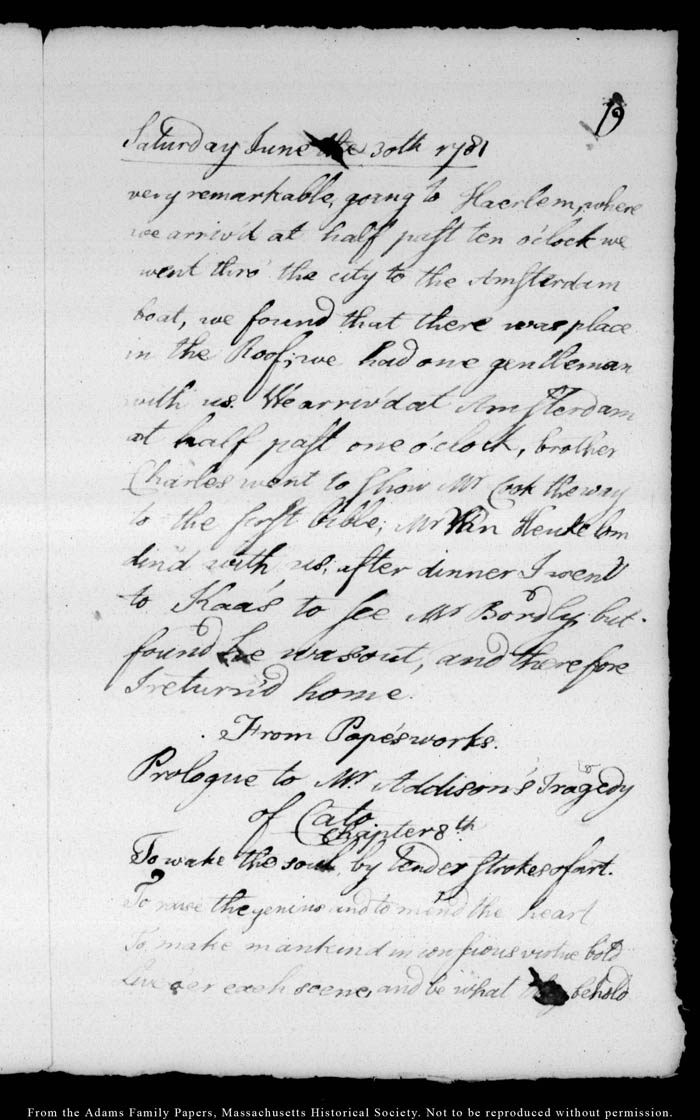 19
Saturday June the 30th 1781
very remarkable, going to Haerlem, where
we arriv'd at half past ten o'clock we
went thro' the city to the Amsterdam
boat, we found that there was place
in the Roof; we had one gentleman
with us. We arriv'd at Amsterdam
at half past one o'clock, brother
Charles went to show Mr Cook the way
to the first bible; Mr Van Heukelom
din'd with us; after dinner I went
to Kaa's to see Mr Bordly but
found he was out, and therefore
I return'd home.
From Pope's works.
Prologue to Mr Addison's Tragedy
of Cato
Chapter 8th
To wake the soul, by tender strokes of art.
To raise the genius and to mend the heart
To make mankind in consious virtue bold
Live o'er each scene, and be what they behold
From the Adams Family Papers, Massachusetts Historical Society. Not to be reproduced without permission.